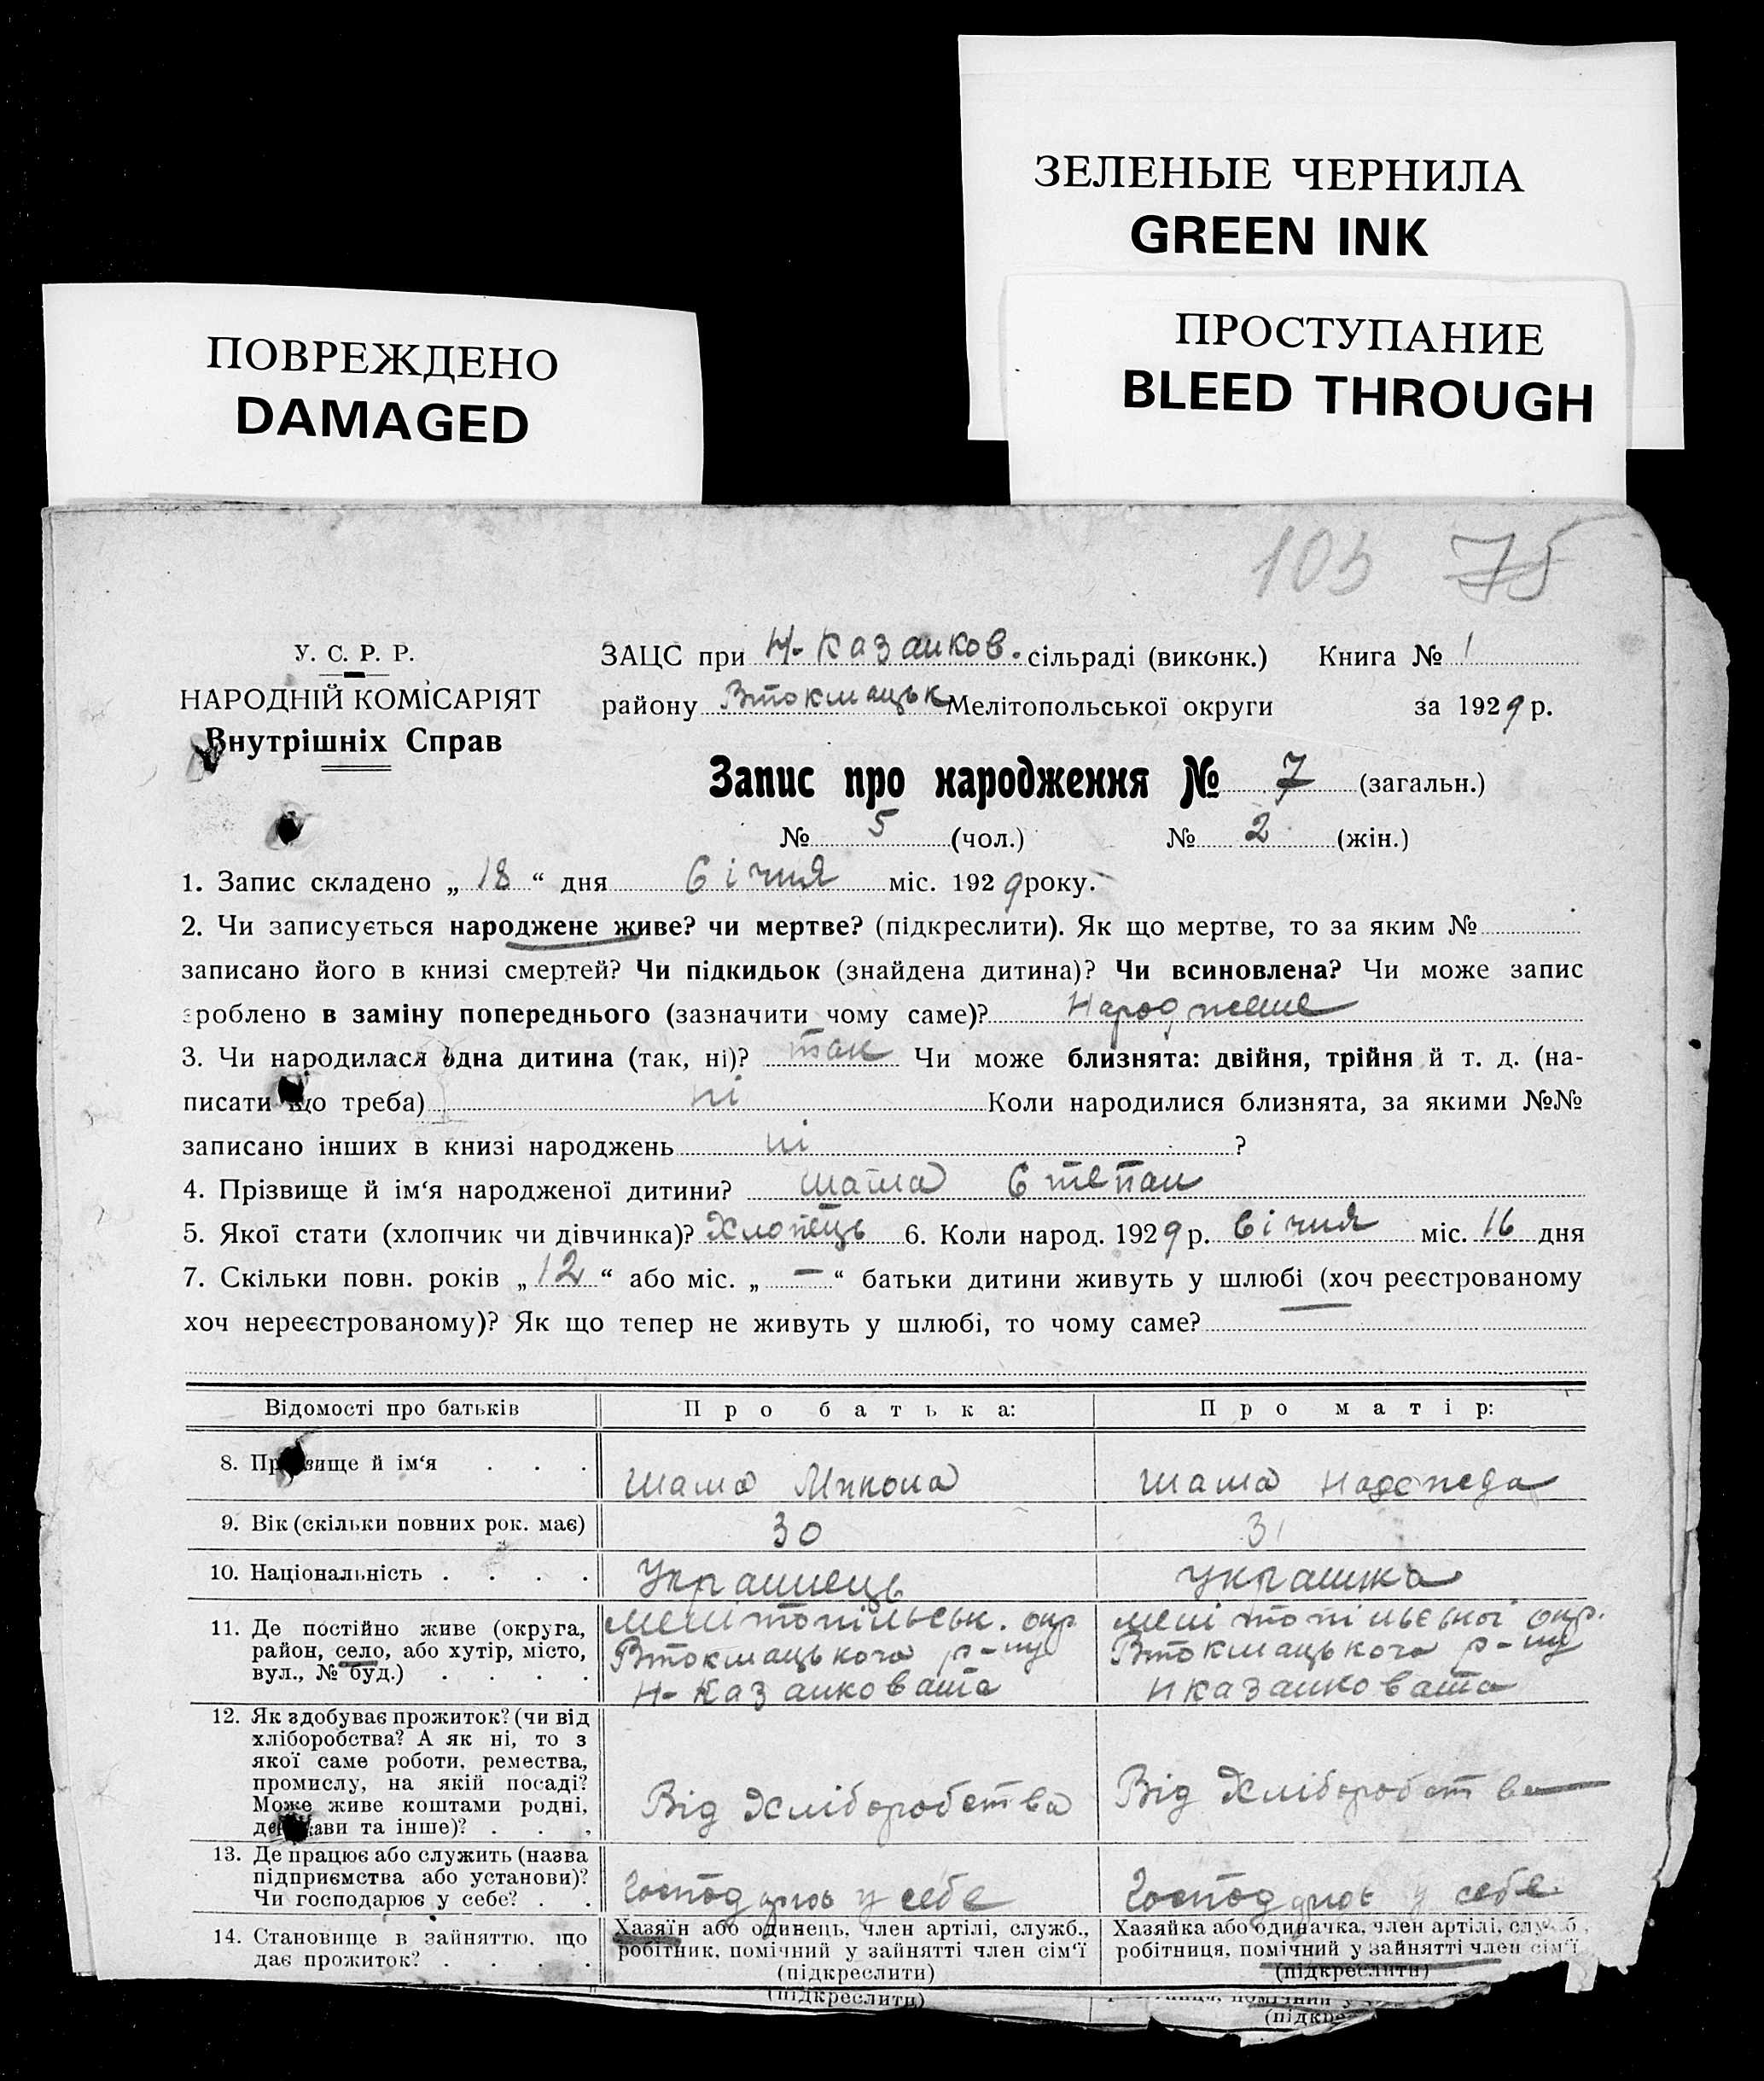 ЗЕЛЕНЫЕ ЧЕРНИЛА
GREEN INK
ПРОСТУПАНИЕ
BLEED THROUGH
ПОВРЕЖДЕНО
DAMAGED
103 75
У. С. Р. Р.
НАРОДНІЙ КОМІСАРІЯТ
Внутрішніх Справ
ЗАЦС при Н-Казанков. сільраді (виконк.) Книга № 1
району Втокмацьк Мелітопольської округи за 1929 р.
Запис про народження № 7 (загальн.)
№ 5 (чол.) № 2 (жін.)
1. Запис складено „ 18 “ дня Січня міс. 1929 року.
2. Чи записується народжене живе? чи мертве? (підкреслити). Як що мертве, то за яким №
записано його в книзі смертей? Чи підкидьок (знайдена дитина)? Чи всиновлена? Чи може запис
зроблено в заміну попереднього (зазначити чому саме)? Народжене
3. Чи народилася одна дитина (так, ні)? так Чи може близнята: двійня, трійня й т. д. (на-
писати що треба) ні Коли народилися близнята, за якими №№
записано інших в книзі народжень ні ?
4. Прізвище й ім‘я народженої дитини? Шама Степан
5. Якої стати (хлопчик чи дівчинка)? Хлопець 6. Коли народ. 1929 р. Січня міс. 16 дня
7. Скільки повн. років „ 12 “ або міс. „ — “ батьки дитини живуть у шлюбі (хоч реєстрованому
хоч нереєстрованому)? Як що тепер не живуть у шлюбі, то чому саме?
Відомості про батьків Про батька: Про матір:
8. Прізвище й ім‘я . . . Шама Микола Шама Надежда
9. Вік (скільки повних рок. має) 30 31
10. Національність . . . . Українець Українка
11. Де постійно живе (округа,
район, село, або хутір, місто,
вул., № буд.) . . . .
Мелітопільськ. окр
Втокмацького р-ну
Н-Казанковата
Мелітопільської окр.
Втокмацького р-ну
Н Казанковата
12. Як здобуває прожиток? (чи від
хліборобства? А як ні, то з
якої саме роботи, ремества,
промислу, на якій посаді?
Може живе коштами родні,
держави та інше)? . . .
Від Хліборобства
Від Хліборобства
13. Де працює або служить (назва
підприємства або установи)?
Чи господарює у себе? . .
Господарює у себе
Господарює у себе
14. Становище в зайняттю, що
дає прожиток? . . . .
Хазяїн або одинець, член артілі, служб.,
робітник, помічний у зайнятті член сім‘ї
(підкреслити)
Хазяйка або одиначка, член артілі, служб.,
робітниця, помічний у зайнятті член сім‘ї
(підкреслити)
(підкреслити)